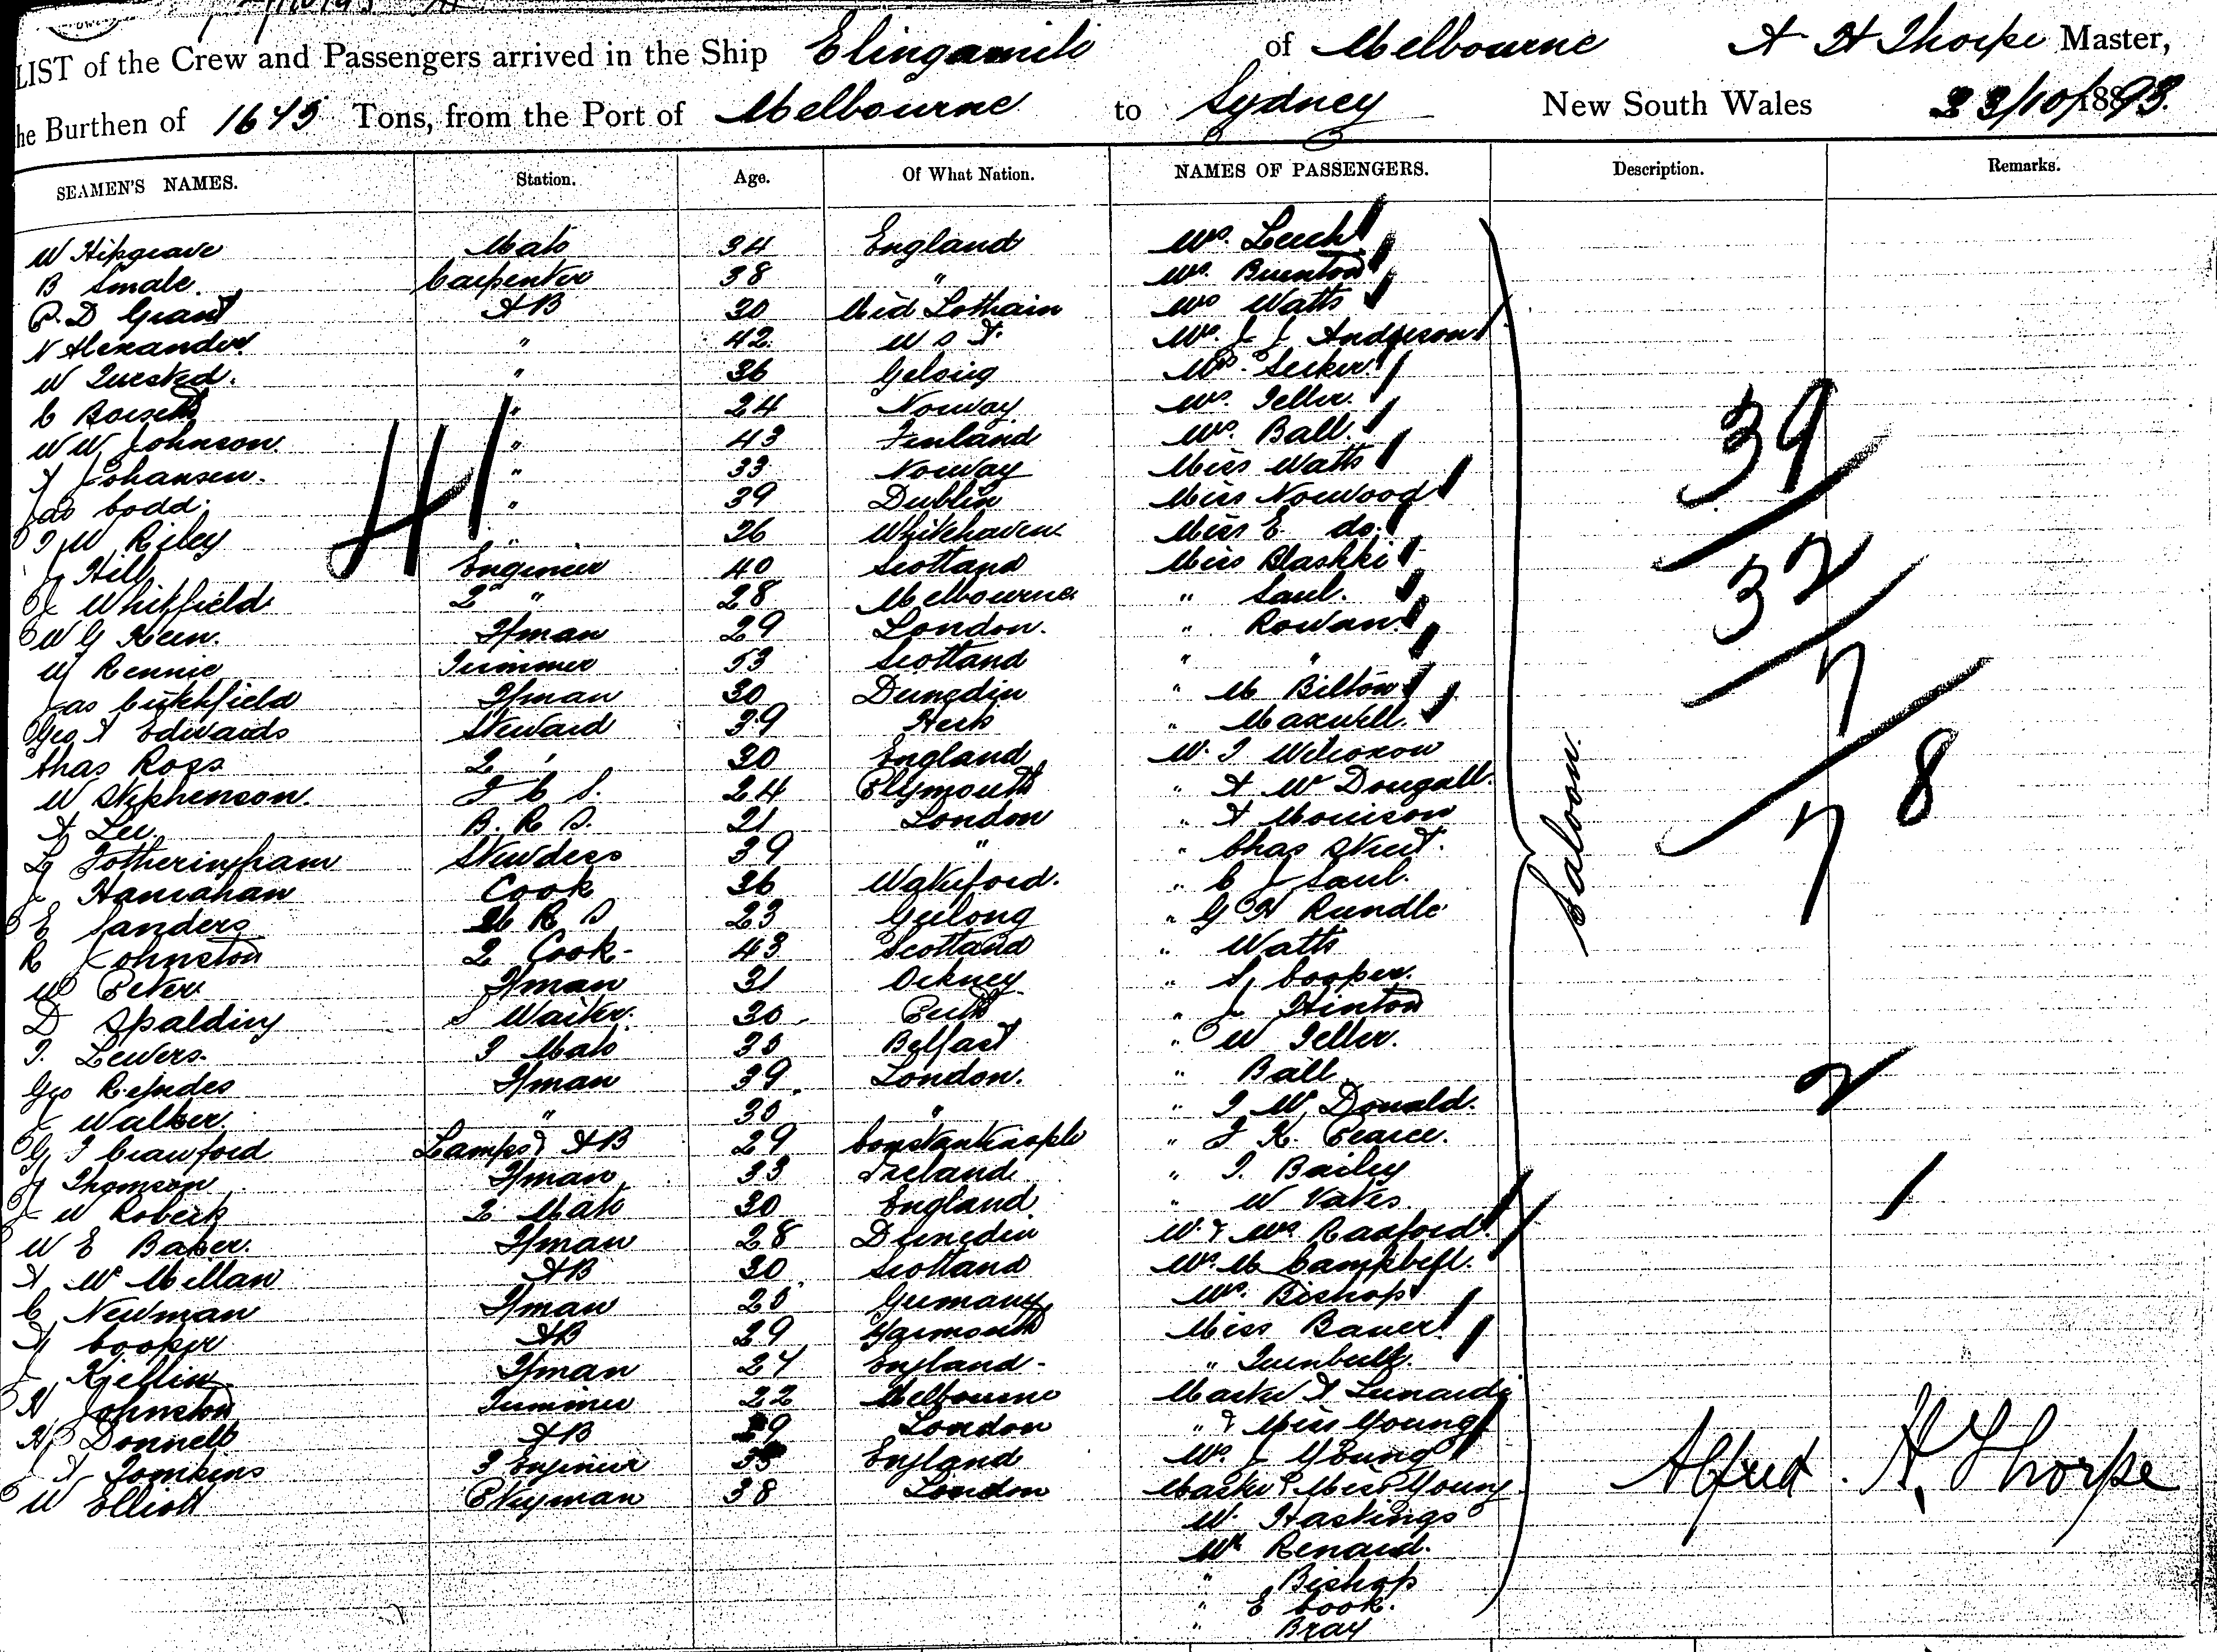 LIST of the Crew and Passengers arrived in the Ship Elingamite of Melbourne A H Thorpe Master,
he Burthen of 1675 Tons, from the Port of Melbourne to Sydney New South Wales 23/10/1893.
SEAMEN'S NAMES. Station. Age. Of What Nation. NAMES OF PASSENGERS. Description. Remarks.
W Hipgrave Mate 34 England Mrs. Leech
B Smale. Carpenter 38 " Mrs. Buenton
P. D Grant AB 30 Mid Lothain Mrs Watts
N Alexander " 42 Mrs. J J Anderson
W Quested. " 36 Mrs. Secker
C " 24 Norway Mrs. Teller.
W W Johnson. " 43 Finland Mrs. Ball.
A Johansen. " 33 Norway Miss Watts
Jas Codd. " 39 Dublin Miss Norwood
T W Riley " 26 Whitehaven Miss E do.
J Hill Engineer 40 Scotland Miss Blashki
J Whitfield 2 " 28 Melbourne " Saul.
W G Keen. F/man 29 London. " Rowan
W Rennie Trimmer 53 Scotland " "
Jas Cutchfield F/man 30 Dunedin " M Bilton
Geo A Edwards Steward 39 " Maxwell.
Chas Ross 2 " 30 England Mr. T Wilcoxon
W Stephenson. F C S. 24 Plymouth " A Mc Dougall.
A Lee. B. R S. 21 London " A Morrison
L Fotheringham Stewdess 39 " " Chas
J Hanrahan Cook 36 " C J Saul.
E Sanders M R S 23 Geelong " G H Rundle
R Johnston 2 Cook 43 Scotland " Watts
W Peter F/man 31 Orkney " S, Cooper.
D Spalding S Waiter. 30 Perth " J Hinton
T. Lewers. 3 Mate Belfast " W Teller.
Geo F/man 39 London. " Ball
J Walker. " 30 " " J Mc Donald.
G T Crawford Lamps & AB 29 Constantinople " F K. Pearce.
J Thomson F/man 33 Ireland " T. Bailey
J W 2 Mate 30 England " W
W E Baker. F/man 28 Dunedin Mr. & Mrs Radford.
A Mc Millan AB 30 Scotland Mrs. M Campbell.
C Newman F/man Germany Mrs. Bishop
A Cooper AB 29 Yarmouth Miss Bauer
J F/man 27 England " Turnbull.
H Johnston Trimmer 22 Melbourne Master A
H Donnell AB London " & Miss Young
A Tomkins 3 Engineer England Mrs. J Young
W Elliott 38 London Master & Miss Young
Mr. Hastings
Mr Renard.
" Bishop
" E Cook.
" Bray
41
Saloon.
39
32
7
78
2
1
Alfred H, Thorpe